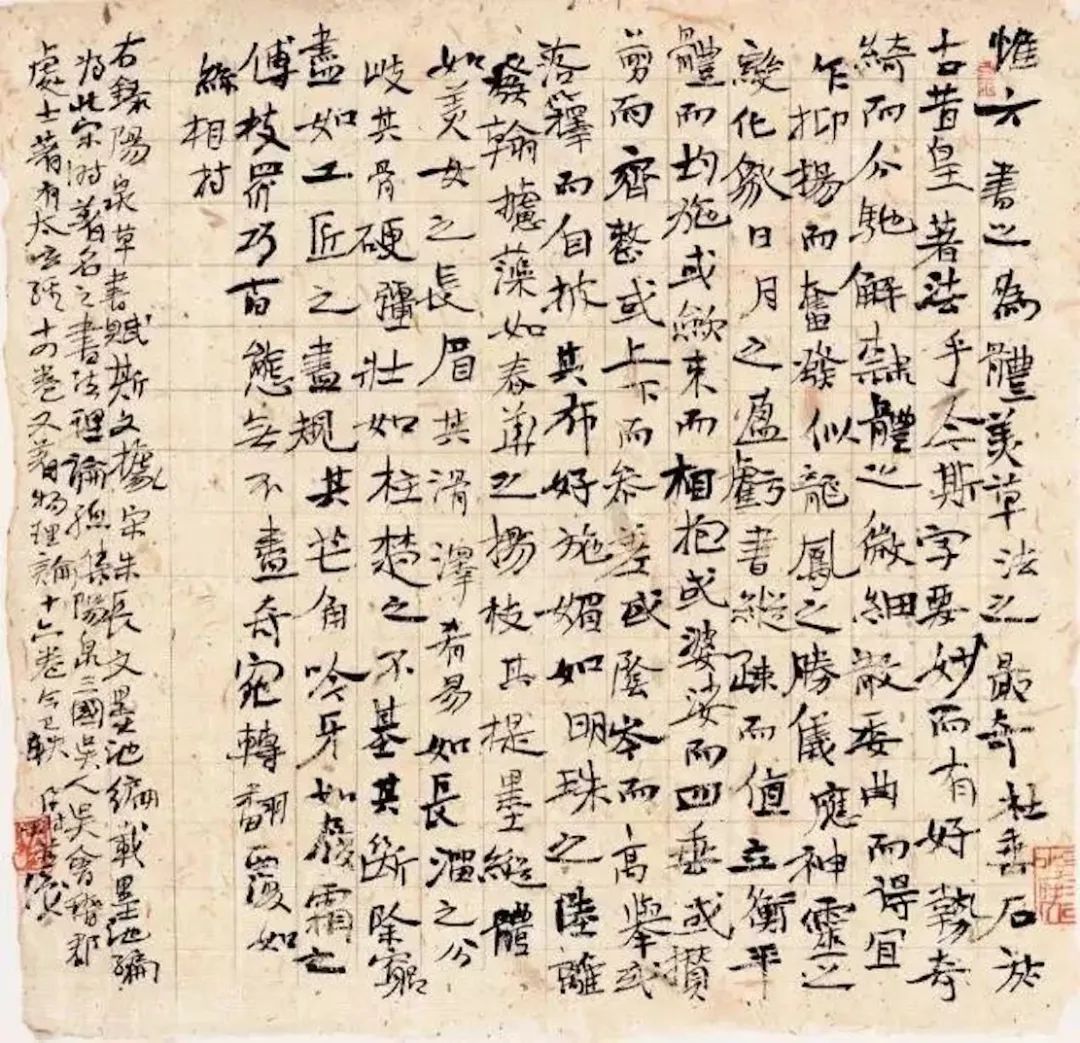 惟六書之為體美草法之最奇杜垂名於
古昔皇著法乎今斯字要妙而有好勢奇
綺而分馳解隸體之微細散委曲而得宜
乍抑揚而奮發似龍鳳之勝儀應神靈之
變化象日月之盈虧書縱疎而值立衡平
體而均施或斂束而相抱或婆娑而四垂或攢
剪而齊整或上下而參差或陰岑而高舉或
落蘀而自披其布好施媚如明珠之陸離
發翰攄藻如春華之揚枝其提墨縱體
如美女之長眉其滑澤肴易如長溜之分
歧其骨硬彊壯如柱楚之不基其斷除窮
盡如工匠之盡規其芒角吟牙如嚴霜之
傅枝眾巧百態無不盡奇宛轉翻覆如
絲相持
右錄陽泉草書賦斯文據宋朱長文墨池編載墨池編
為此宋時著名之書法理論 陽泉三國吳人吳會稽郡
處士著有太玄經十四卷又著物理論十六卷今已軼